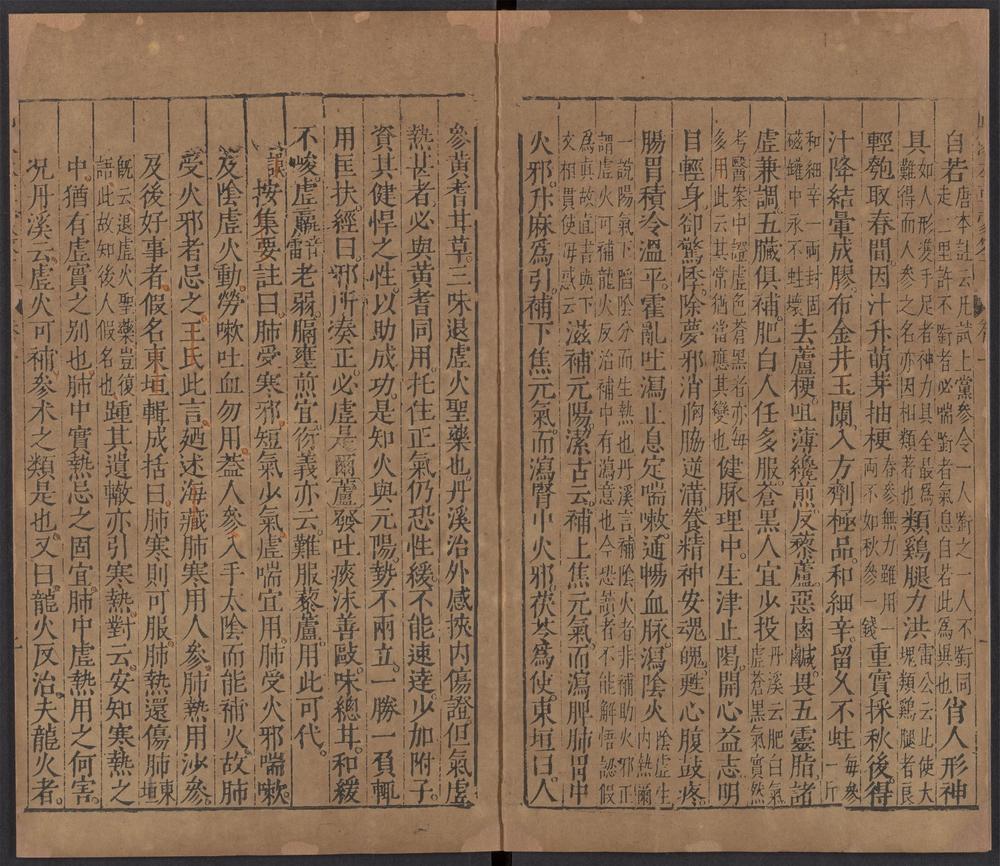 自若唐本註云凡試上黨參令一人啣之一人不啣同走一里許不啣者必喘啣者氣息自若此為異也肖人形神
具如人形獲手足者神力具全最爲難得而人參之名亦因相類著也類鷄腿力洪雷公云此使大塊類鷄腿者良
輕匏取春間因汁升萌芽抽梗春參無力雖用一兩不如秋參一錢重實採秋後得
汁降結暈成膠布金井玉闌入方劑極品和細辛留久不蛀每參一斤
和細辛一兩封固磁罐中永不蛀壞去蘆梗咀薄纔煎反藜蘆惡鹵鹹畏五靈脂諸
虛兼調五臟俱補肥白人任多服蒼黑人宜少投丹溪云肥白氣虛蒼黑氣實然
考醫案中證虛色蒼黑者亦每多用此云其常猶當應其變也健脉理中生津止渴開心益志明
目輕身卻驚悸除夢邪消胸脇逆滿養精神安魂魄甦心腹鼓疼
腸胃積冷溫平霍亂吐瀉止息定喘嗽通暢血脉瀉陰火陰虛生內熱爾
一說陽氣下陷陰分而生熱也丹溪言補陰火者非補助火邪正謂虛火可補龍火反治補中有瀉意也今恐讀者不能解悟認假
爲真故直書與下文相貫使毋惑云滋補元陽潔古云補上焦元氣而瀉脾肺胃中
火邪升麻爲引補下焦元氣而瀉腎中火邪茯苓爲使東垣曰人
參黃耆甘草三味退虛火聖藥也丹溪治外感挾内傷證但氣虛
熱甚者必與黃耆同用托住正氣仍恐性緩不能速達少加附子
資其健悍之性以助成功是知火與元陽勢不兩立一勝一負輒
用匡扶經曰邪所湊正必虛是爾蘆發吐痰沫善敲味總甘和緩
不峻虛羸音雷老弱膈壅煎宜衍義亦云難服藜蘆用此可代
謨按集要註曰肺受寒邪短氣少氣虛喘宜用肺受火邪喘嗽
及陰虛火動勞嗽吐血勿用蓋人參入手太陰而能補火故肺
受火邪者忌之王氏此言廼述海藏肺寒用人參肺熱用沙參
及後好事者假名東垣輯成括曰肺寒則可服肺熱還傷肺東垣
既云退虛火聖藥豈復語此故知後人假名也踵其遺轍亦引寒熱對云安知寒熱之
中猶有虛實之別也肺中實熱忌之固宜肺中虛熱用之何害
况丹溪云虛火可補參术之類是也又曰龍火反治夫龍火者